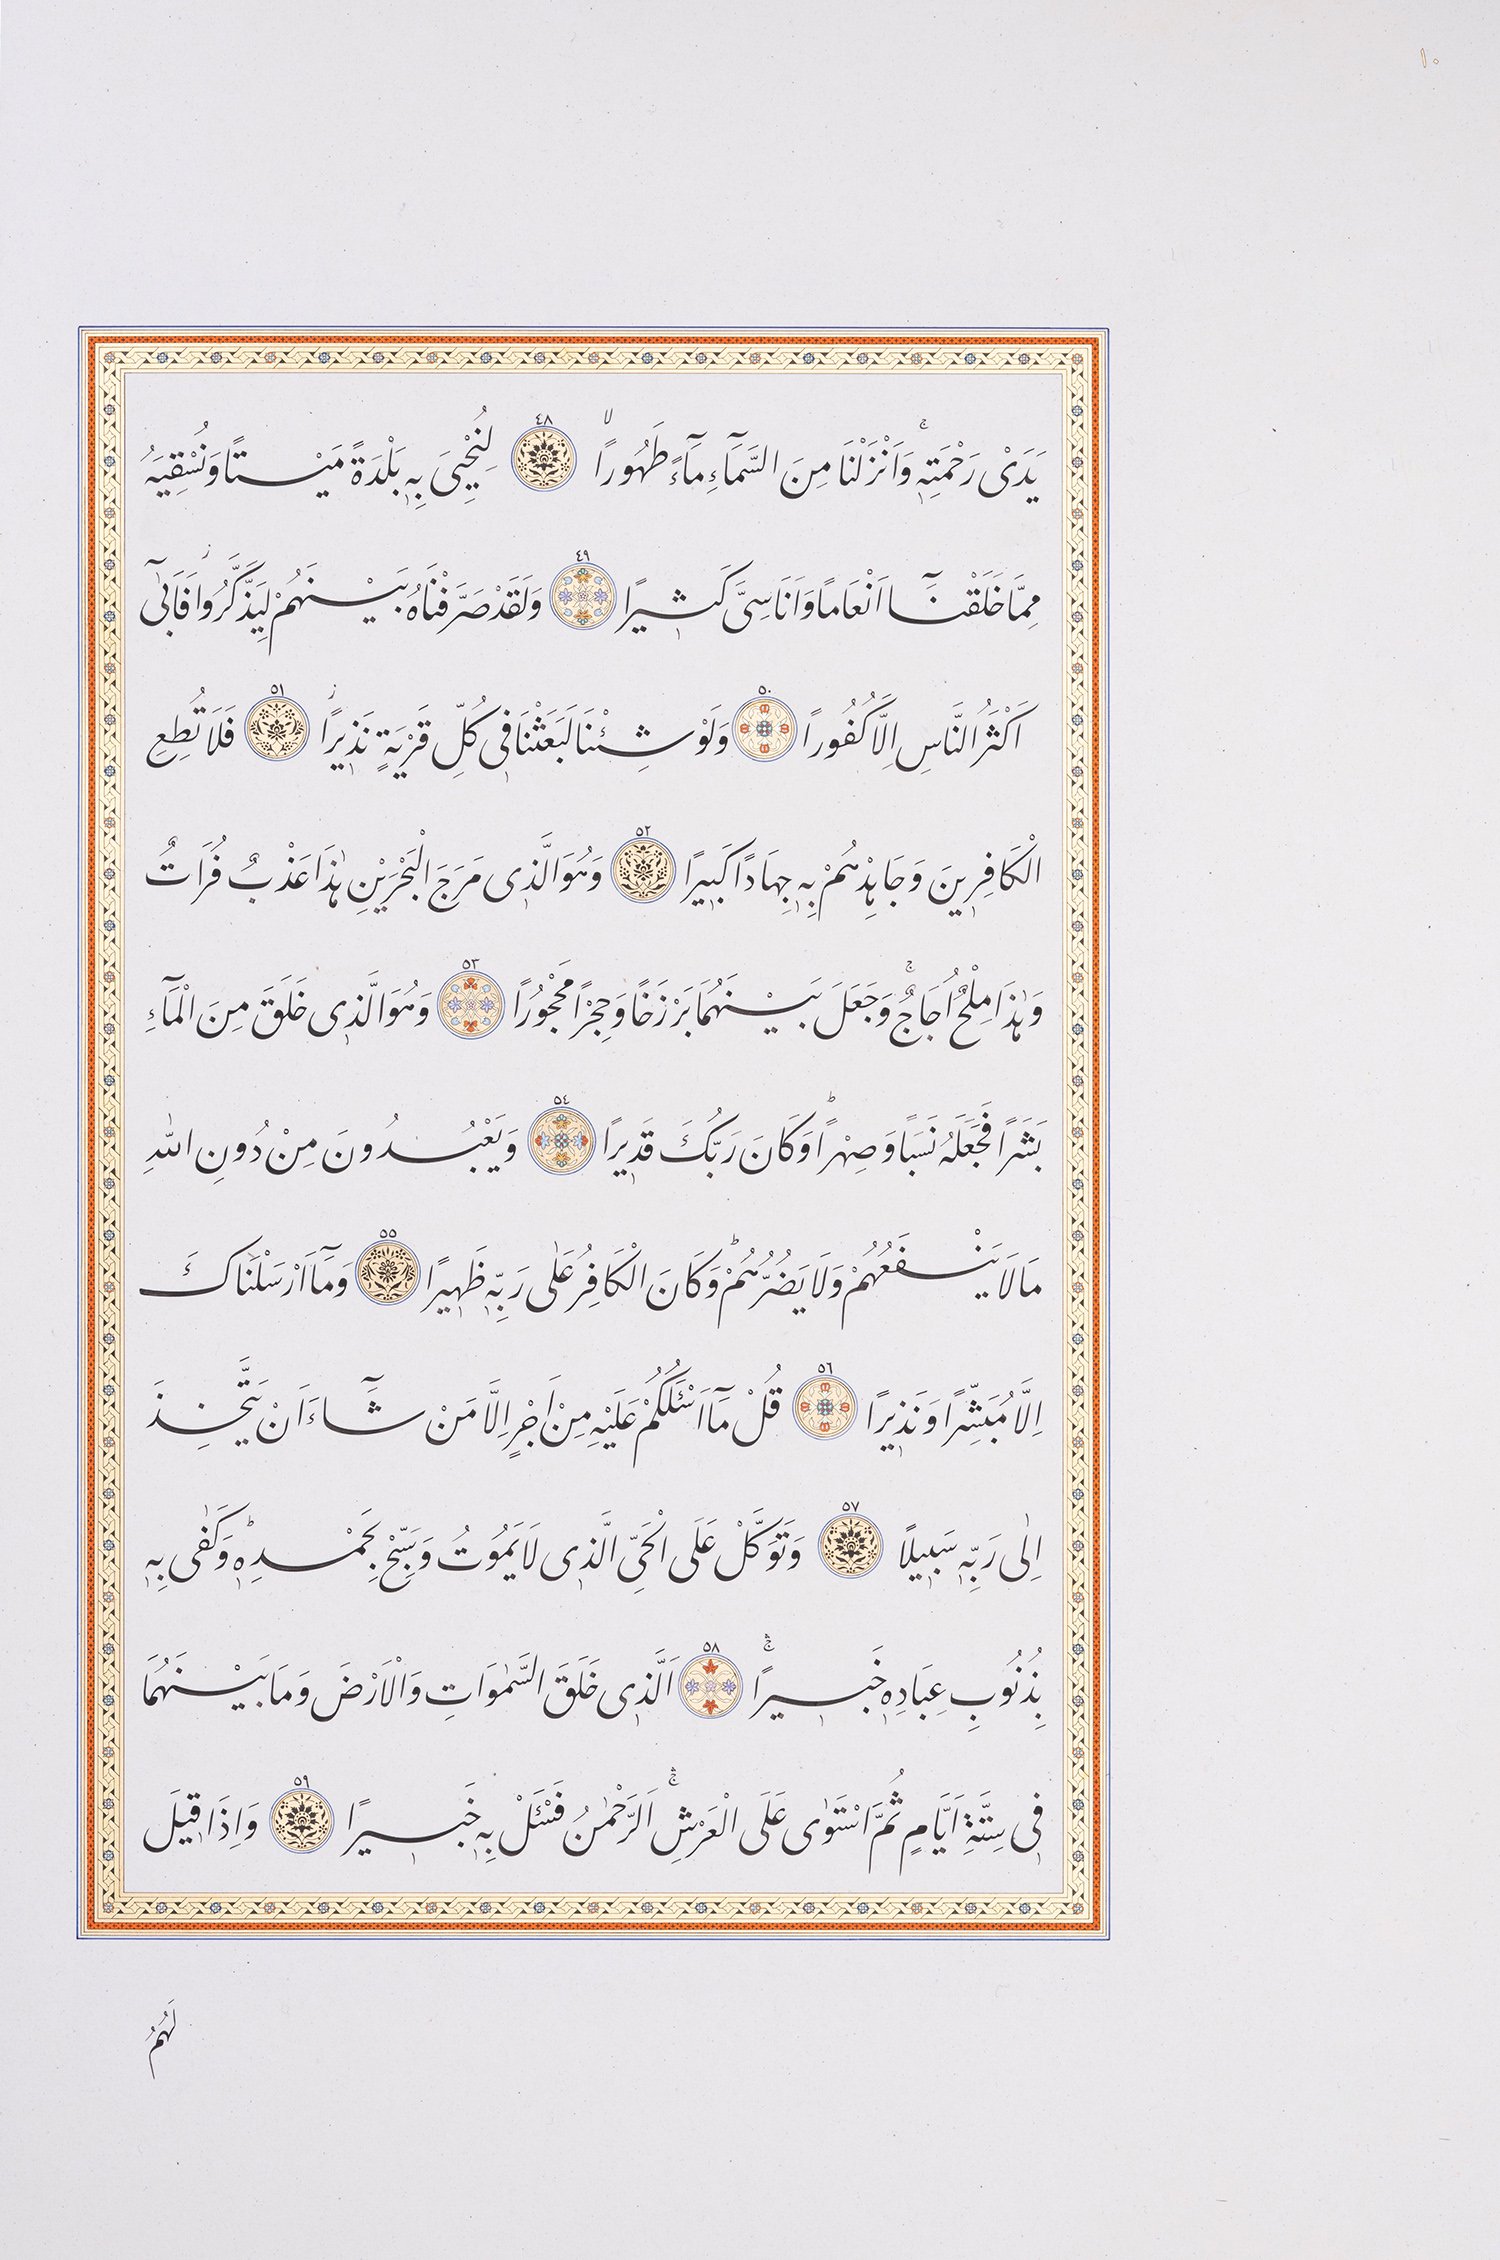 ١٠
يَدَىْ رَحْمَتِهٖۚ وَاَنْزَلْنَا مِنَ السَّمَآءِ مَآءً طَهُورًاۙ ٤٨ لِنُحْيِىَ بِهٖ بَلْدَةً مَيْتًا وَنُسْقِيَهُ
مِمَّا خَلَقْنَٓا اَنْعَامًا وَاَنَاسِىَّ كَثٖيرًا ٤٩ وَلَقَدْ صَرَّفْنَاهُ بَيْنَهُمْ لِيَذَّكَّرُواۘ فَاَبٰٓى
اَكْثَرُ النَّاسِ اِلَّا كُفُورًا ٥٠ وَلَوْ شِئْنَا لَبَعَثْنَا فٖى كُلِّ قَرْيَةٍ نَذٖيرًاۘ ٥١ فَلَا تُطِعِ
الْكَافِرٖينَ وَجَاهِدْهُمْ بِهٖ جِهَادًا كَبٖيرًا ٥٢ وَهُوَ الَّذٖى مَرَجَ الْبَحْرَيْنِ هٰذَا عَذْبٌ فُرَاتٌ
وَهٰذَا مِلْحٌ اُجَاجٌۚ وَجَعَلَ بَيْنَهُمَا بَرْزَخًا وَحِجْرًا مَحْجُورًا ٥٣ وَهُوَ الَّذٖى خَلَقَ مِنَ الْمَآءِ
بَشَرًا فَجَعَلَهُ نَسَبًا وَصِهْرًاؕ وَكَانَ رَبُّكَ قَدٖيرًا ٥٤ وَيَعْبُدُونَ مِنْ دُونِ اللّٰهِ
مَا لَا يَنْفَعُهُمْ وَلَا يَضُرُّهُمْؕ وَكَانَ الْكَافِرُ عَلٰى رَبِّهٖ ظَهٖيرًا ٥٥ وَمَٓا اَرْسَلْنَاكَ
اِلَّا مُبَشِّرًا وَنَذٖيرًا ٥٦ قُلْ مَٓا اَسْـَٔلُكُمْ عَلَيْهِ مِنْ اَجْرٍ اِلَّا مَنْ شَٓاءَ اَنْ يَتَّخِذَ
اِلٰى رَبِّهٖ سَبٖيلًا ٥٧ وَتَوَكَّلْ عَلَى الْحَىِّ الَّذٖى لَا يَمُوتُ وَسَبِّحْ بِحَمْدِهٖؕ وَكَفٰى بِهٖ
بِذُنُوبِ عِبَادِهٖ خَبٖيرًاۚۛ ٥٨ اَلَّذٖى خَلَقَ السَّمٰوَاتِ وَالْاَرْضَ وَمَا بَيْنَهُمَا
فٖى سِتَّةِ اَيَّامٍ ثُمَّ اسْتَوٰى عَلَى الْعَرْشِۚۛ اَلرَّحْمٰنُ فَسْـَٔلْ بِهٖ خَبٖيرًا ٥٩ وَاِذَا قٖيلَ
لَهُمُ